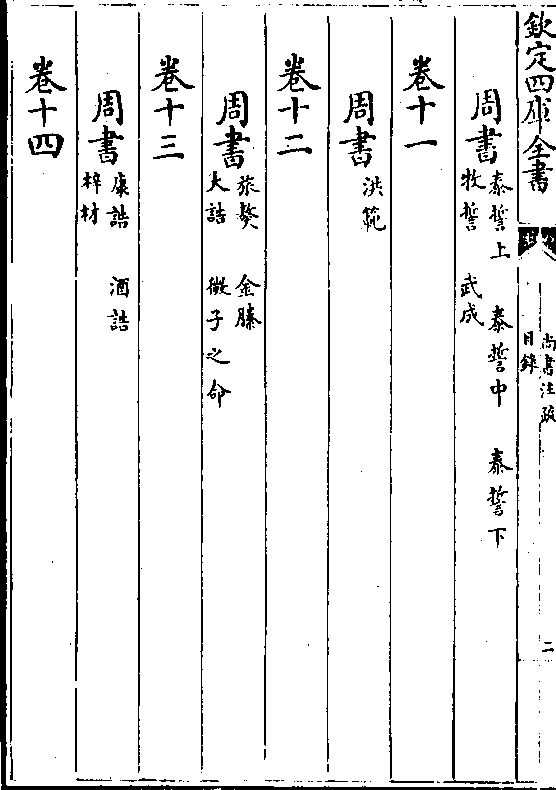 欽定四庫全書
尚書注疏
目錄
二
周書
泰誓上 泰誓中 泰誓下
牧誓 武成
卷十一
周書
洪範
卷十二
周書
旅獒 金縢
大誥 微子之命
卷十三
周書
康誥 酒誥
梓材
卷十四